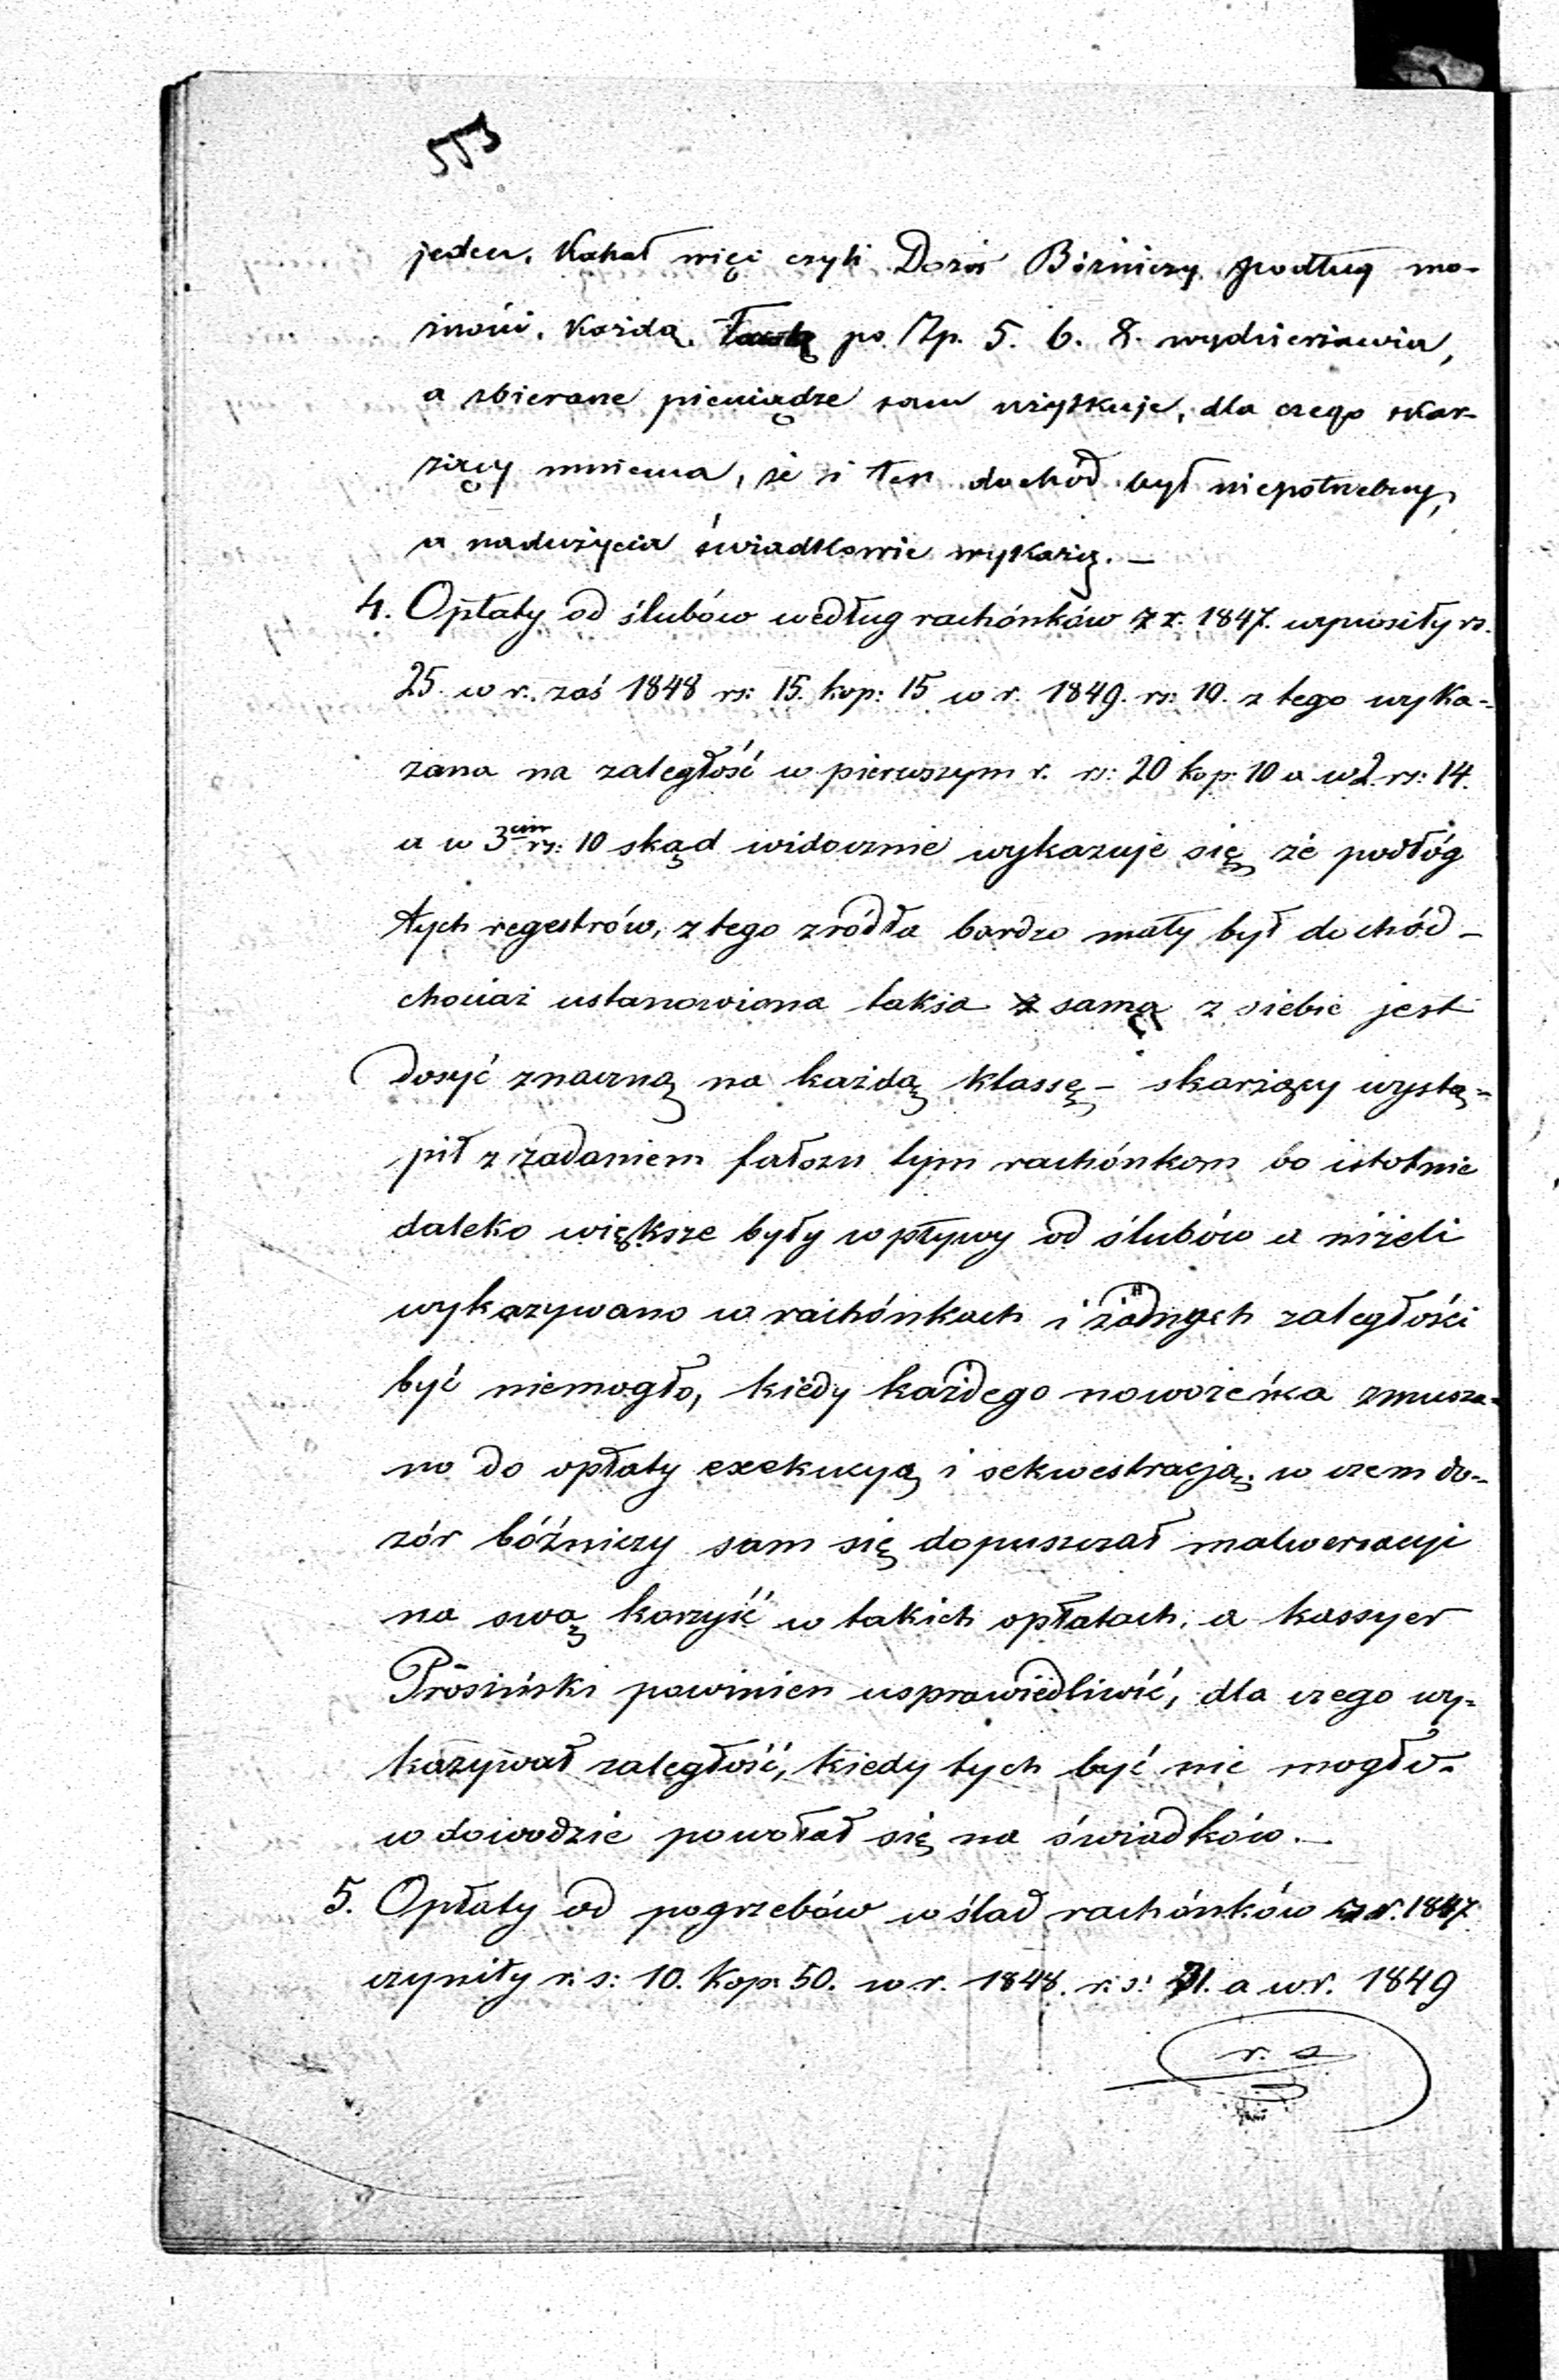 553
jeden. Kahał więc czyli Dozór Bóżniczy podług mo-
żności, każdą Ławkę po Zp. 5. 6. 8. wydzierżawia,
a zbierane pieniądze sam użytkuje, dla czego skar-
żący mniema, że i ten dochód był niepotrzebny,
a nadużycia świadkowie wykażą. —
4. Opłaty od ślubów według rachónków z r. 1847. wynosiły rs.
25. w r. zaś 1848 rs: 15. kop: 15 w r. 1849. rs: 10. z tego wyka-
zana na zaległość w pierwszym r. rs: 20 kop: 10 a w 2. rs: 14.
a w 3cim rs: 10 skąd widocznie wykazuje się że podłóg
tych regestrów, z tego źródła bardzo mały był dochód –
chociaż ustanowiona taksa z samą z siebie jest
dosyć znaczną na każdą klassę – skarżący wystą-
pił z żadaniem fałszu tym rachónkom bo istotnie
daleko większe były wpływy od ślubów a niżeli
wykazywano w rachónkach i żadnych zaległości
być niemogło, kiedy każdego nowożeńca zmusza-
no do opłaty exekucyą i sekwestracją. w czem do-
zór bóźniczy sam się dopuszczał malwersacyi
na swą korzyść w takich opłatach, a kassyer
Prosiński powinien usprawiedliwić, dla czego wy-
kazywał zaległość, kiedy tych być nie mogło.
w dowodzie powołał się na świadków. —
5. Opłaty od pogrzebów w ślad rachónków z r. 1847
czyniły r: s: 10. kop: 50. w r. 1848. r: s: 31. a w r. 1849
r. s